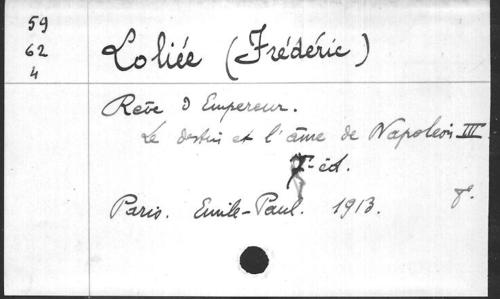 59
62
4
Loliée (Frédéric)
Rêve d'Empereur.
Le destin et l'âme de Napoléon III
éd.
Paris. Emile-Paul. 1913.